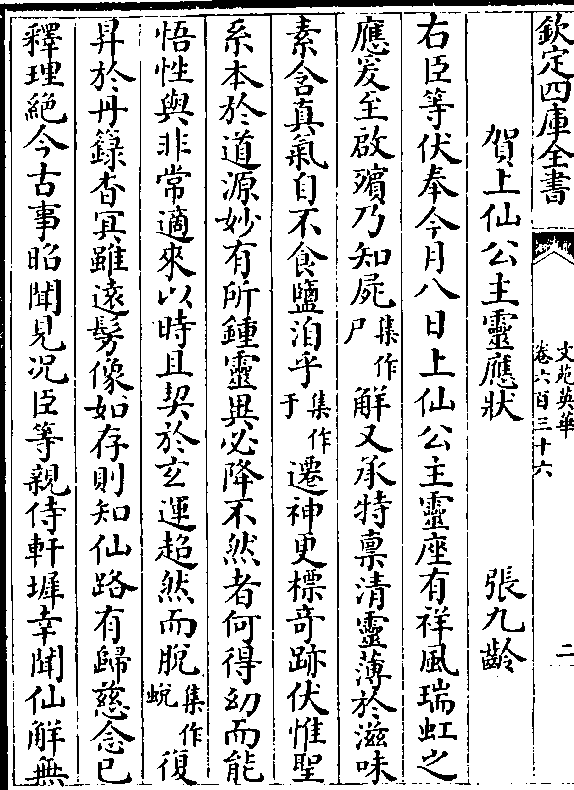 欽定四庫全書
文苑英華
卷六百三十六
二
賀上仙公主靈應狀　張九齡
右臣等伏奉今月八日上仙公主靈座有祥風瑞虹之
應爰至啟殯乃知屍集作尸解又承特禀清靈薄於滋味
素含真氣自不食鹽洎乎集作于遷神更標奇跡伏惟聖
系本於道源妙有所鍾靈異必降不然者何得幼而能
悟性與非常適來以時且契於玄運超然而脫集作蛻復
昇於丹籙杳冥雖遠髣像如存則知仙路有歸慈念已
釋理絶今古事昭聞見况臣等親侍軒墀幸聞仙解無